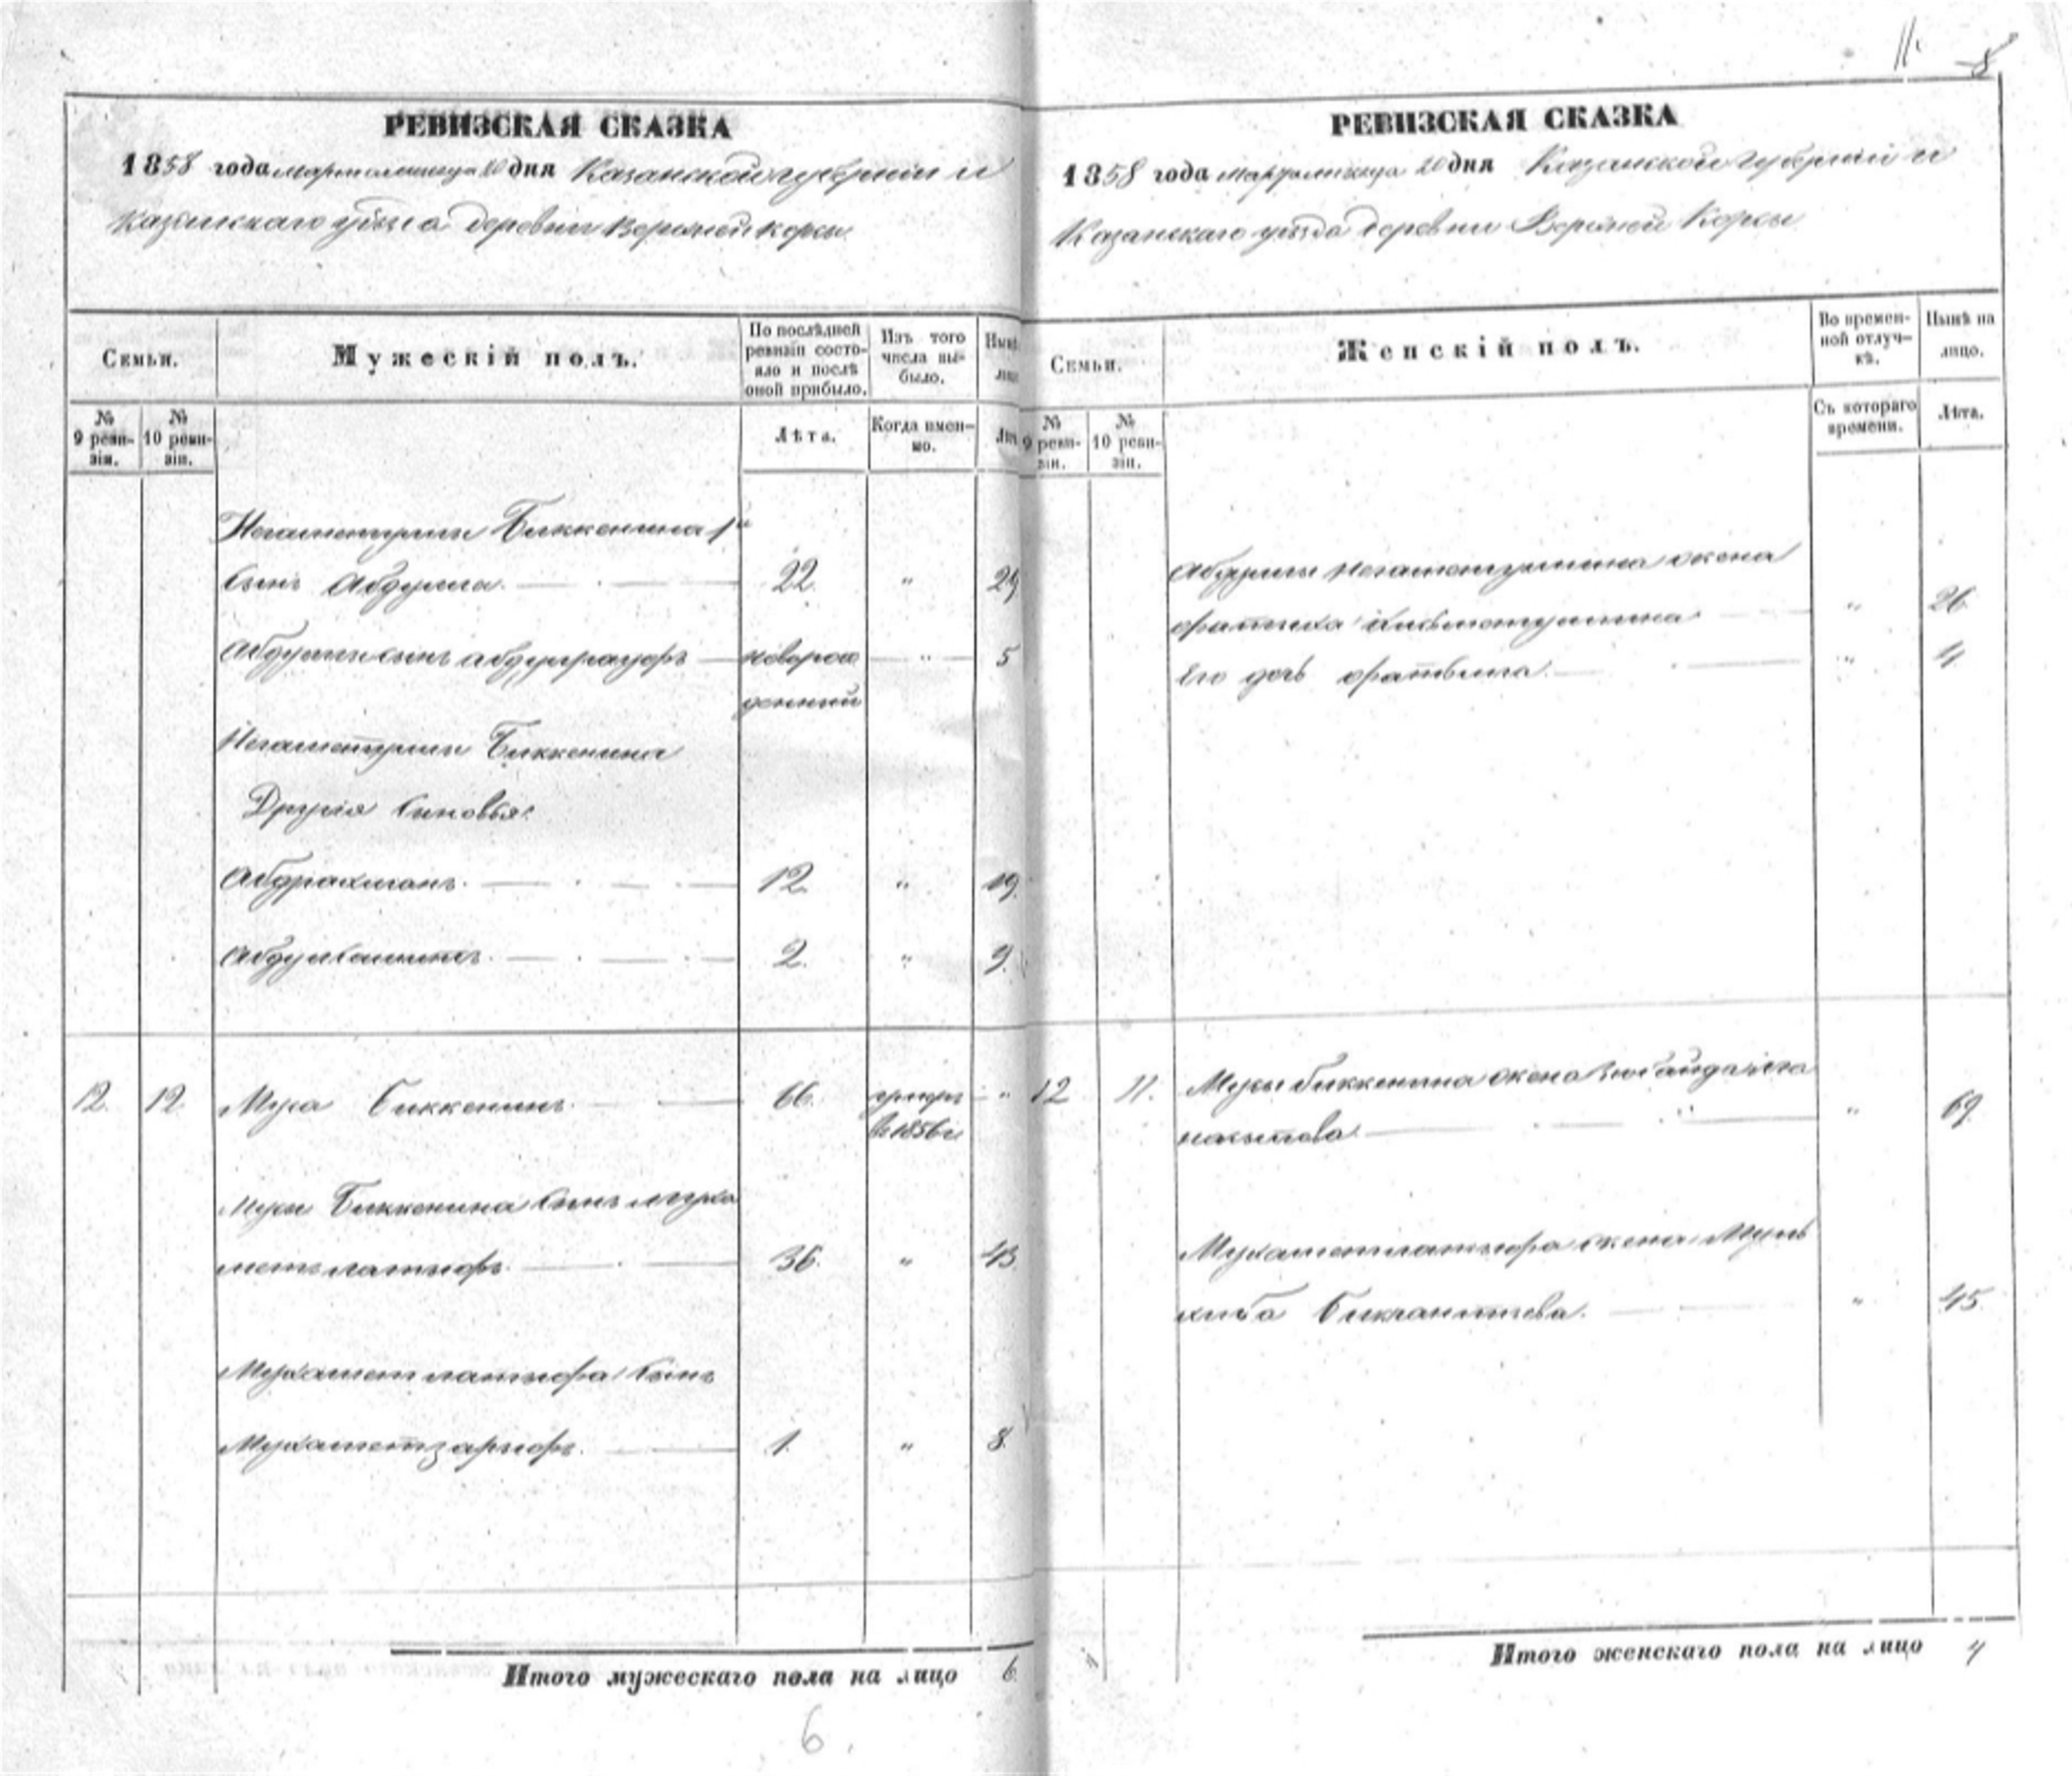 11. 8
РЕВИЗСКАЯ СКАЗКА
1858 года марта месяца 20 дня Казанской губернии и
Казанскаго уѣзда деревни Верхней Корсы
Семьи.
Мужескій полъ.
По послѣдней
ревизіи состо-
яло и послѣ
оной прибыло.
Изъ того
числа вы-
было.
№
9 реви-
зіи.
№
10 реви-
зіи.
Лѣта.
Когда имен-
но.
Негаметуллы Биккенина 1й
сынъ Абдулла. 22. " 29
Абдуллы сынъ абдулрауфъ новорож " 5
денный
Негаметуллы Биккенина
Другія сыновья:
Абдрахманъ. 12. " 19.
2. " 9.
12. 12. Муса Биккенинъ. 66. умеръ "
въ 1856 г.
Мусы Биккенина сынъ муха
метьлатыфъ. 36. " 43.
Мухаметлатыфа сынъ
Мухаметзарыфъ. 1. " 8.
Итого мужескаго пола на лицо 6.
6.
РЕВИЗСКАЯ СКАЗКА
1858 года марта месяца 20 дня Казанской губернии и
Казанскаго уѣзда деревни Верхней Корсы
Семьи.
Женскій полъ.
Во времен-
ной отлуч-
кѣ.
Нынѣ на
лицо.
№
9 реви-
зіи.
№
10 реви-
зіи.
Съ котораго
времени.
Лѣта.
Абдуллы Негаметуллина жена
" 26.
Его дочь " 4
12 11. Мусы биккенина жена
" 69.
Мухаметлатыфа жена Мунь
" 45
Итого женскаго пола на лицо 4